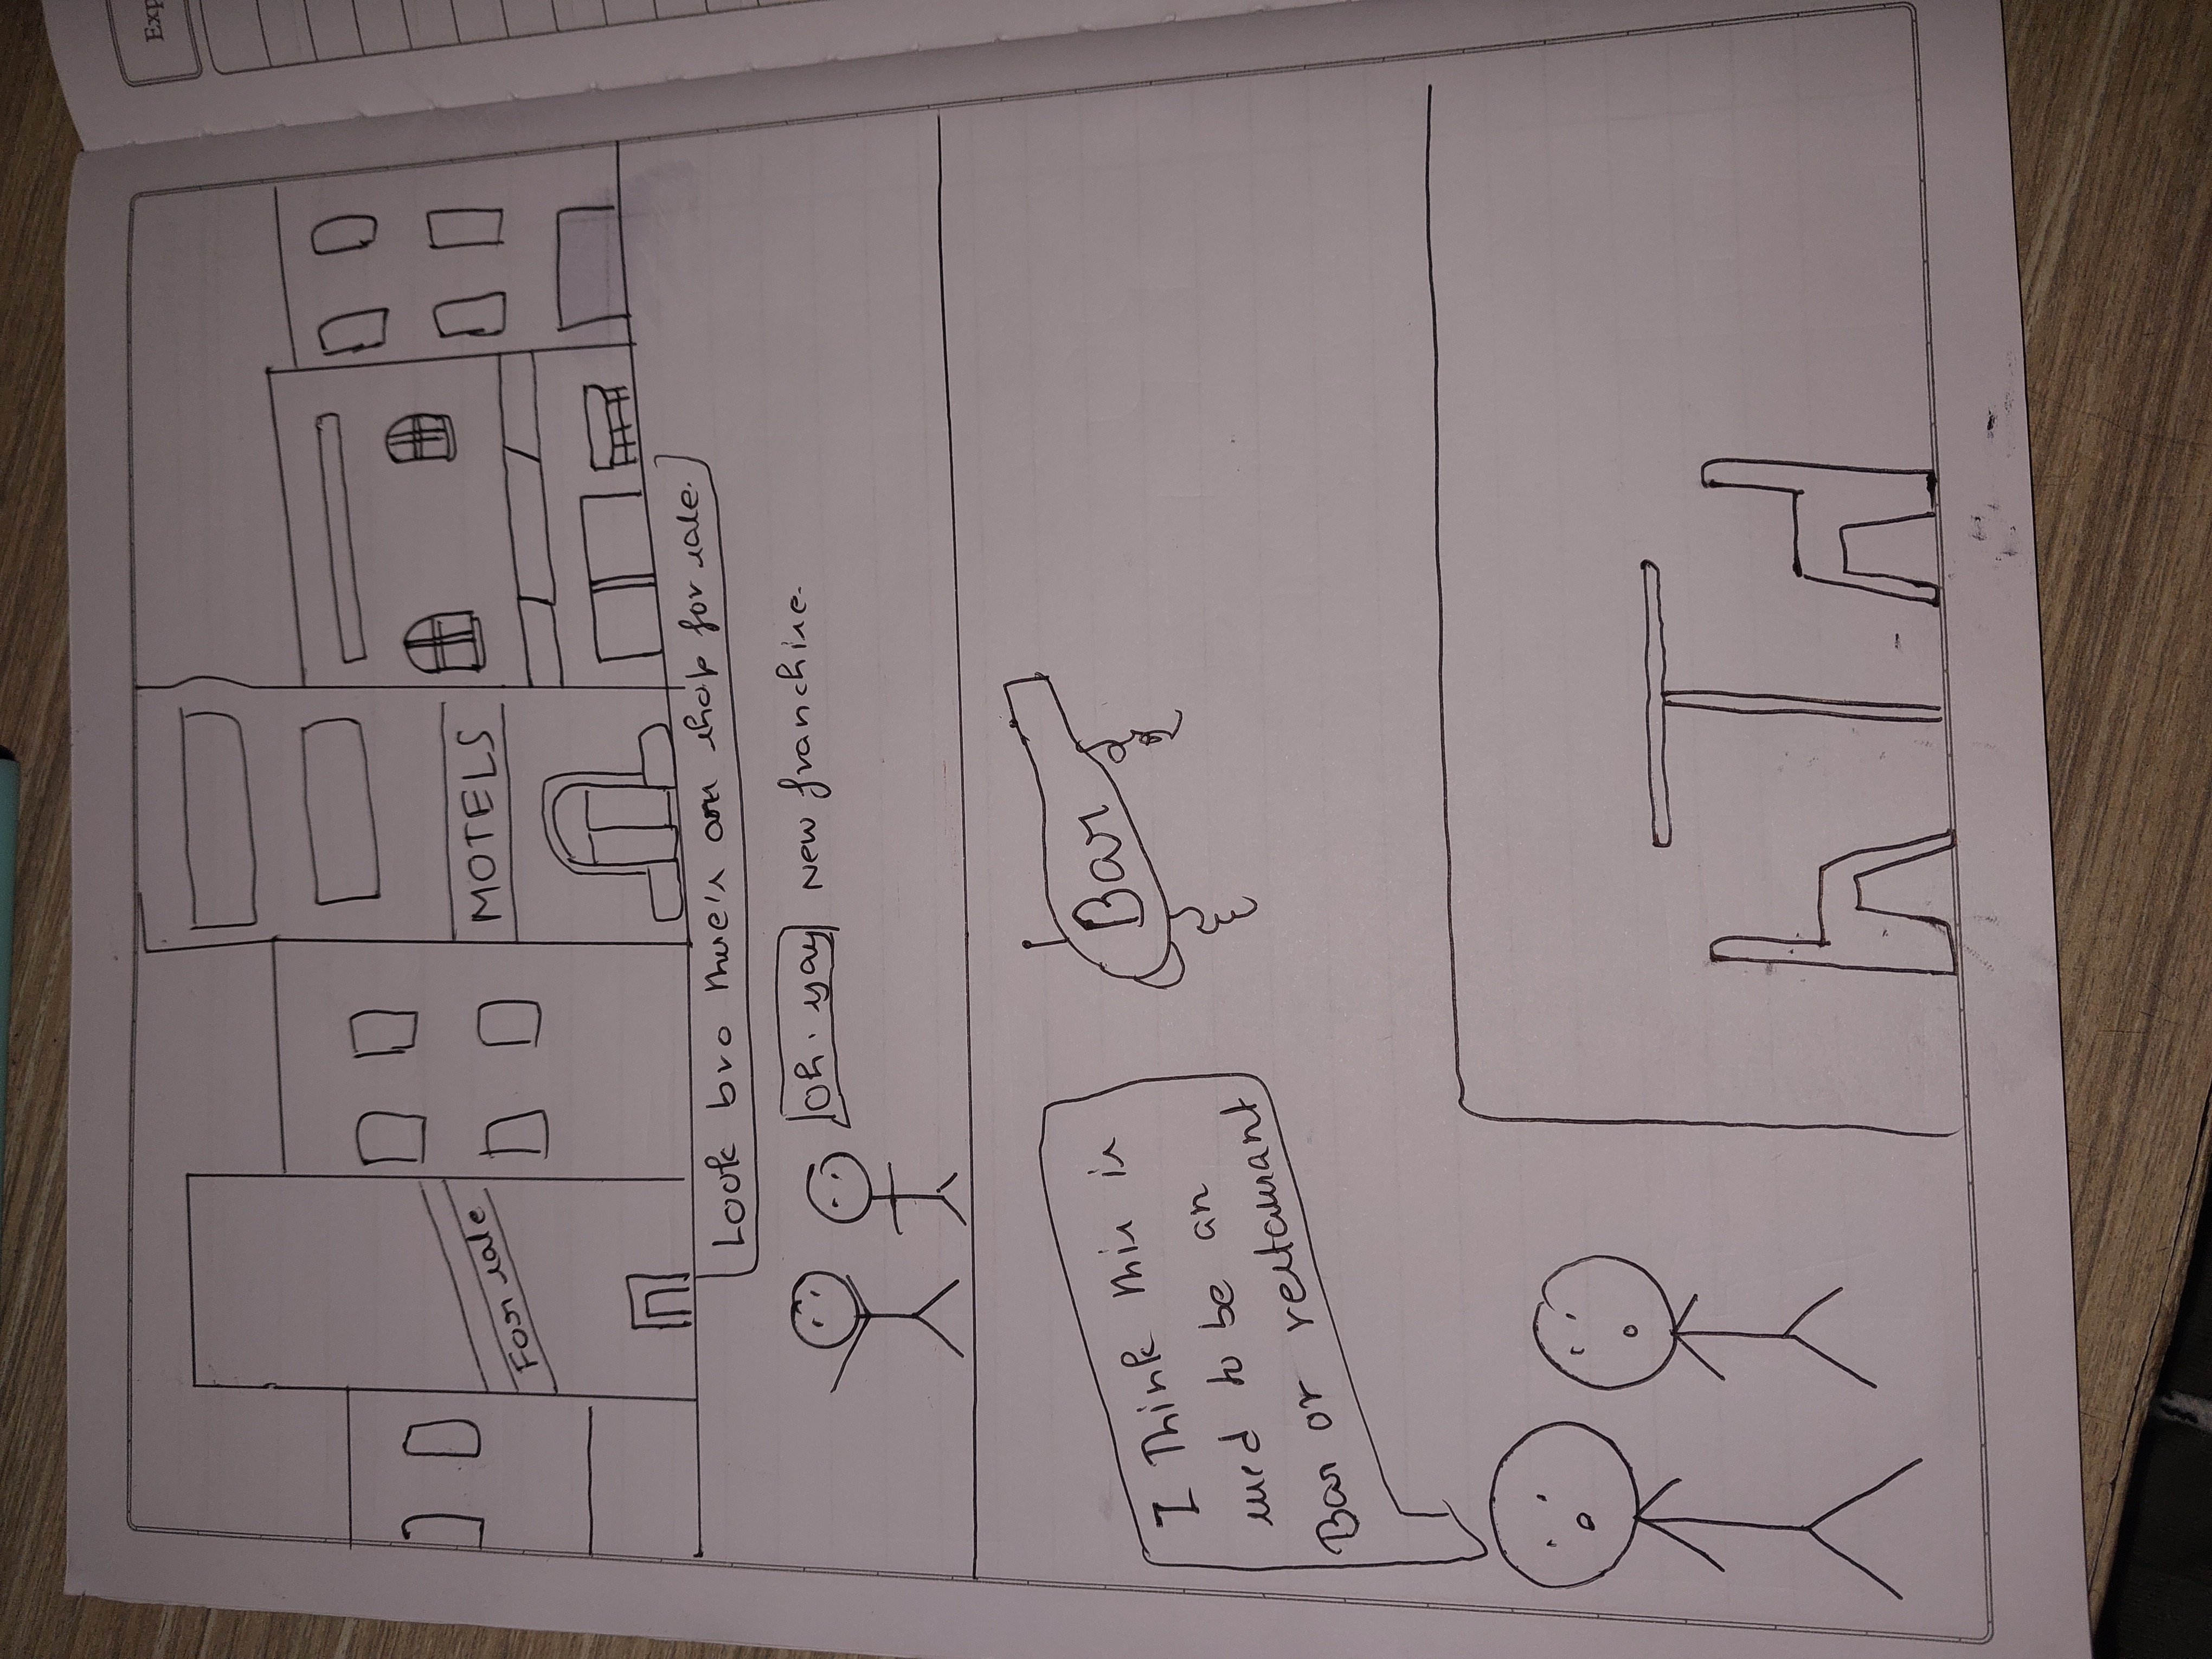 For sale
MOTELS
Look bro there's an shop for sale.
Oh. yay New franchise.
I Think this is
used to be an
Bar or restaurant
Bar
Exp